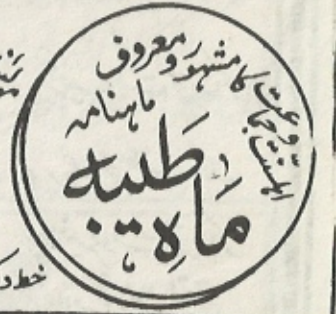 اہلسنّت وجماعت کا مشہور ومعروف
ماہنامہ
ماہِ طیبہ